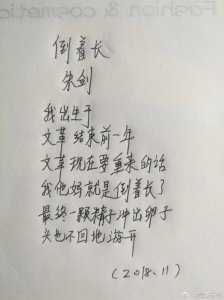 Fashion & cosmetic
倒着长
朱剑
我出生于
文革结束前一年
文革现在要重来的话
我他妈就是倒着长了
最终一颗精子冲出卵子
头也不回地游开
(2018.11)